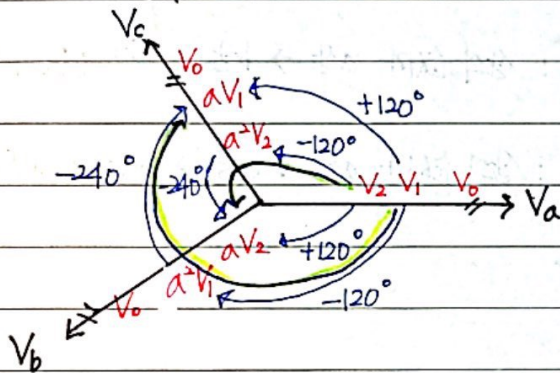 Vc
V₀
aV₁
+120°
a²V₂
-120°
-240°
-240°
V₂ V₁ V₀
Va
aV₂
+120°
a²V₁
-120°
V₀
Vb